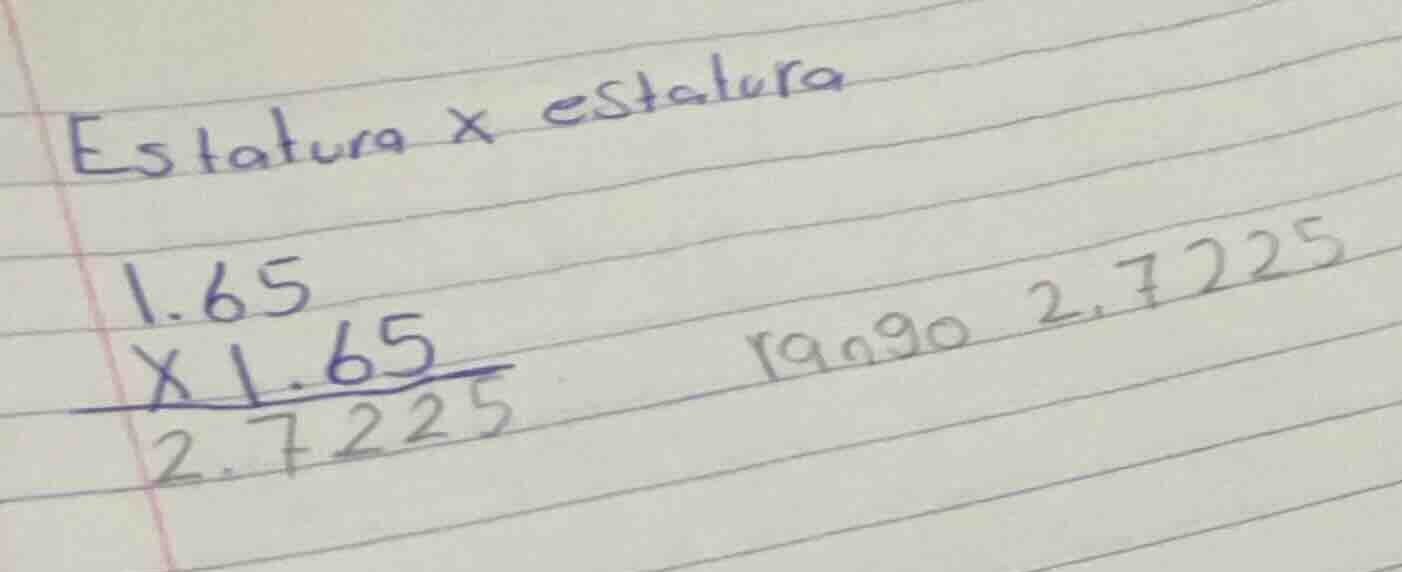 Estatura x estatura
1.65
x 1.65
2.7225
rango 2.7225